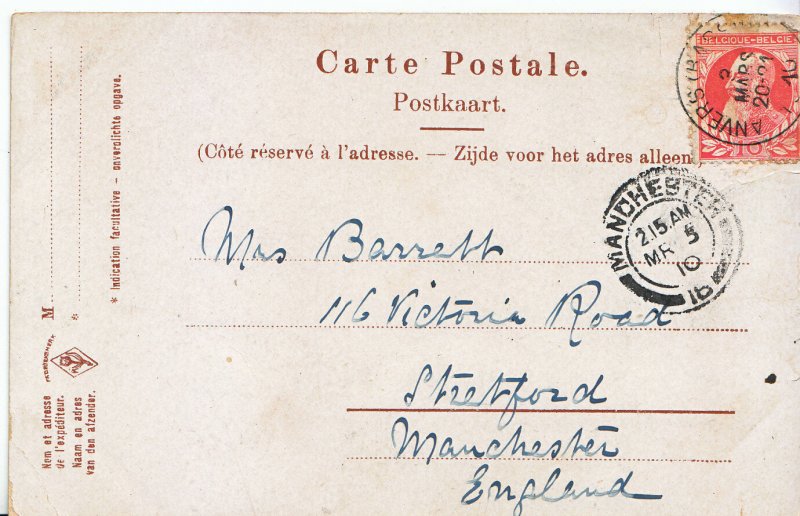 Carte Postale.
Postkaart.
(Côté réservé à l'adresse. — Zijde voor het adres alleen)
BELGIQUE-BELGIË
ANVERS
3
MARS
20-21
10
MANCHESTER
2.15 AM
MR 5
10
Mrs Barrett
116 Victoria Road
Stretford
Manchester
England
* Indication facultative - onverplichte opgave.
M
*
Nom et adresse
de l'expéditeur.
Naam en adres
van den afzender.